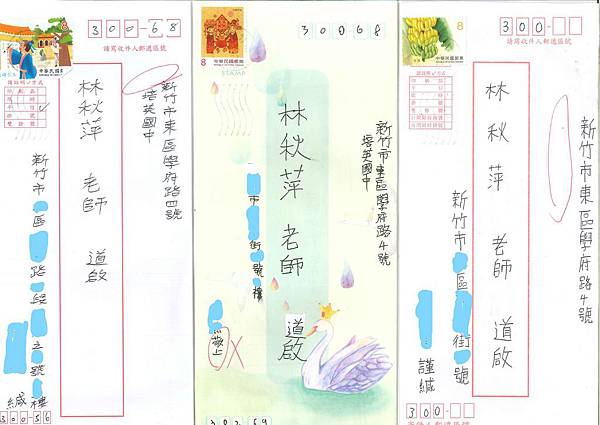 300-68
請寫收件人郵遞區號
新竹市東區學府路四號
培英國中
林秋萍 老師 道啟
新竹市 區 路 段 之 號 樓
緘
300-56
8
中華民國郵票
STAMP
30068
新竹市東區學府路4號
培英國中
林秋萍 老師 道啟
市 街 號 樓
敬上
8
中華民國郵票
300-
請寫收件人郵遞區號
新竹市東區學府路4號
林秋萍 老師 道啟
新竹市 區 街 號
謹緘
300-